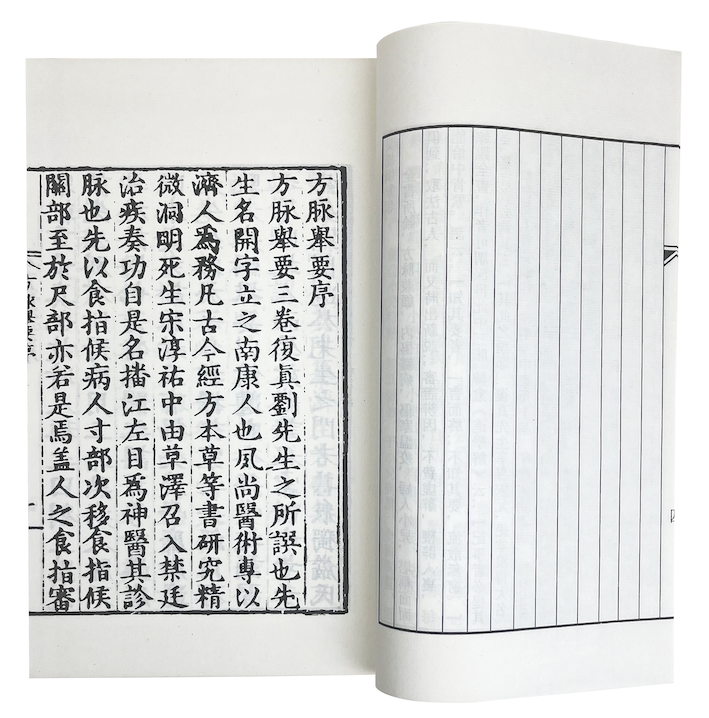 方脉舉要序
方脉舉要三卷復眞劉先生之所譔也先
生名開字立之南康人也夙尚醫術專以
濟人爲務凡古今經方本草等書研究精
微洞明死生宋淳祐中由草澤召入禁廷
治疾奏功自是名播江左目爲神醫其診
脉也先以食指候病人寸部次移食指候
關部至於尺部亦若是焉盖人之食指審
方脉舉要序